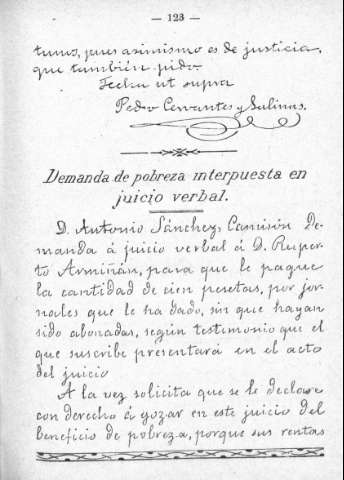 — 123 —
tunus, pues asimismo es de justicia,
que también pido.
Fecha ut supra
Pedro Cervantes y Salinas.
Demanda de pobreza interpuesta en
juicio verbal.
D. Antonio Sánchez, Camisón De-
manda á juicio verbal á D. Ruper-
to Armiñán, para que le pague
la cantidad de cien pesetas, por jor-
nales que le ha dado, sin que hayan
sido abonadas, según testimonio que el
que suscribe presentará en el acto
del juicio
A la vez solicita que se le declare
con derecho á gozar en este juicio del
beneficio de pobreza, porque sus rentas